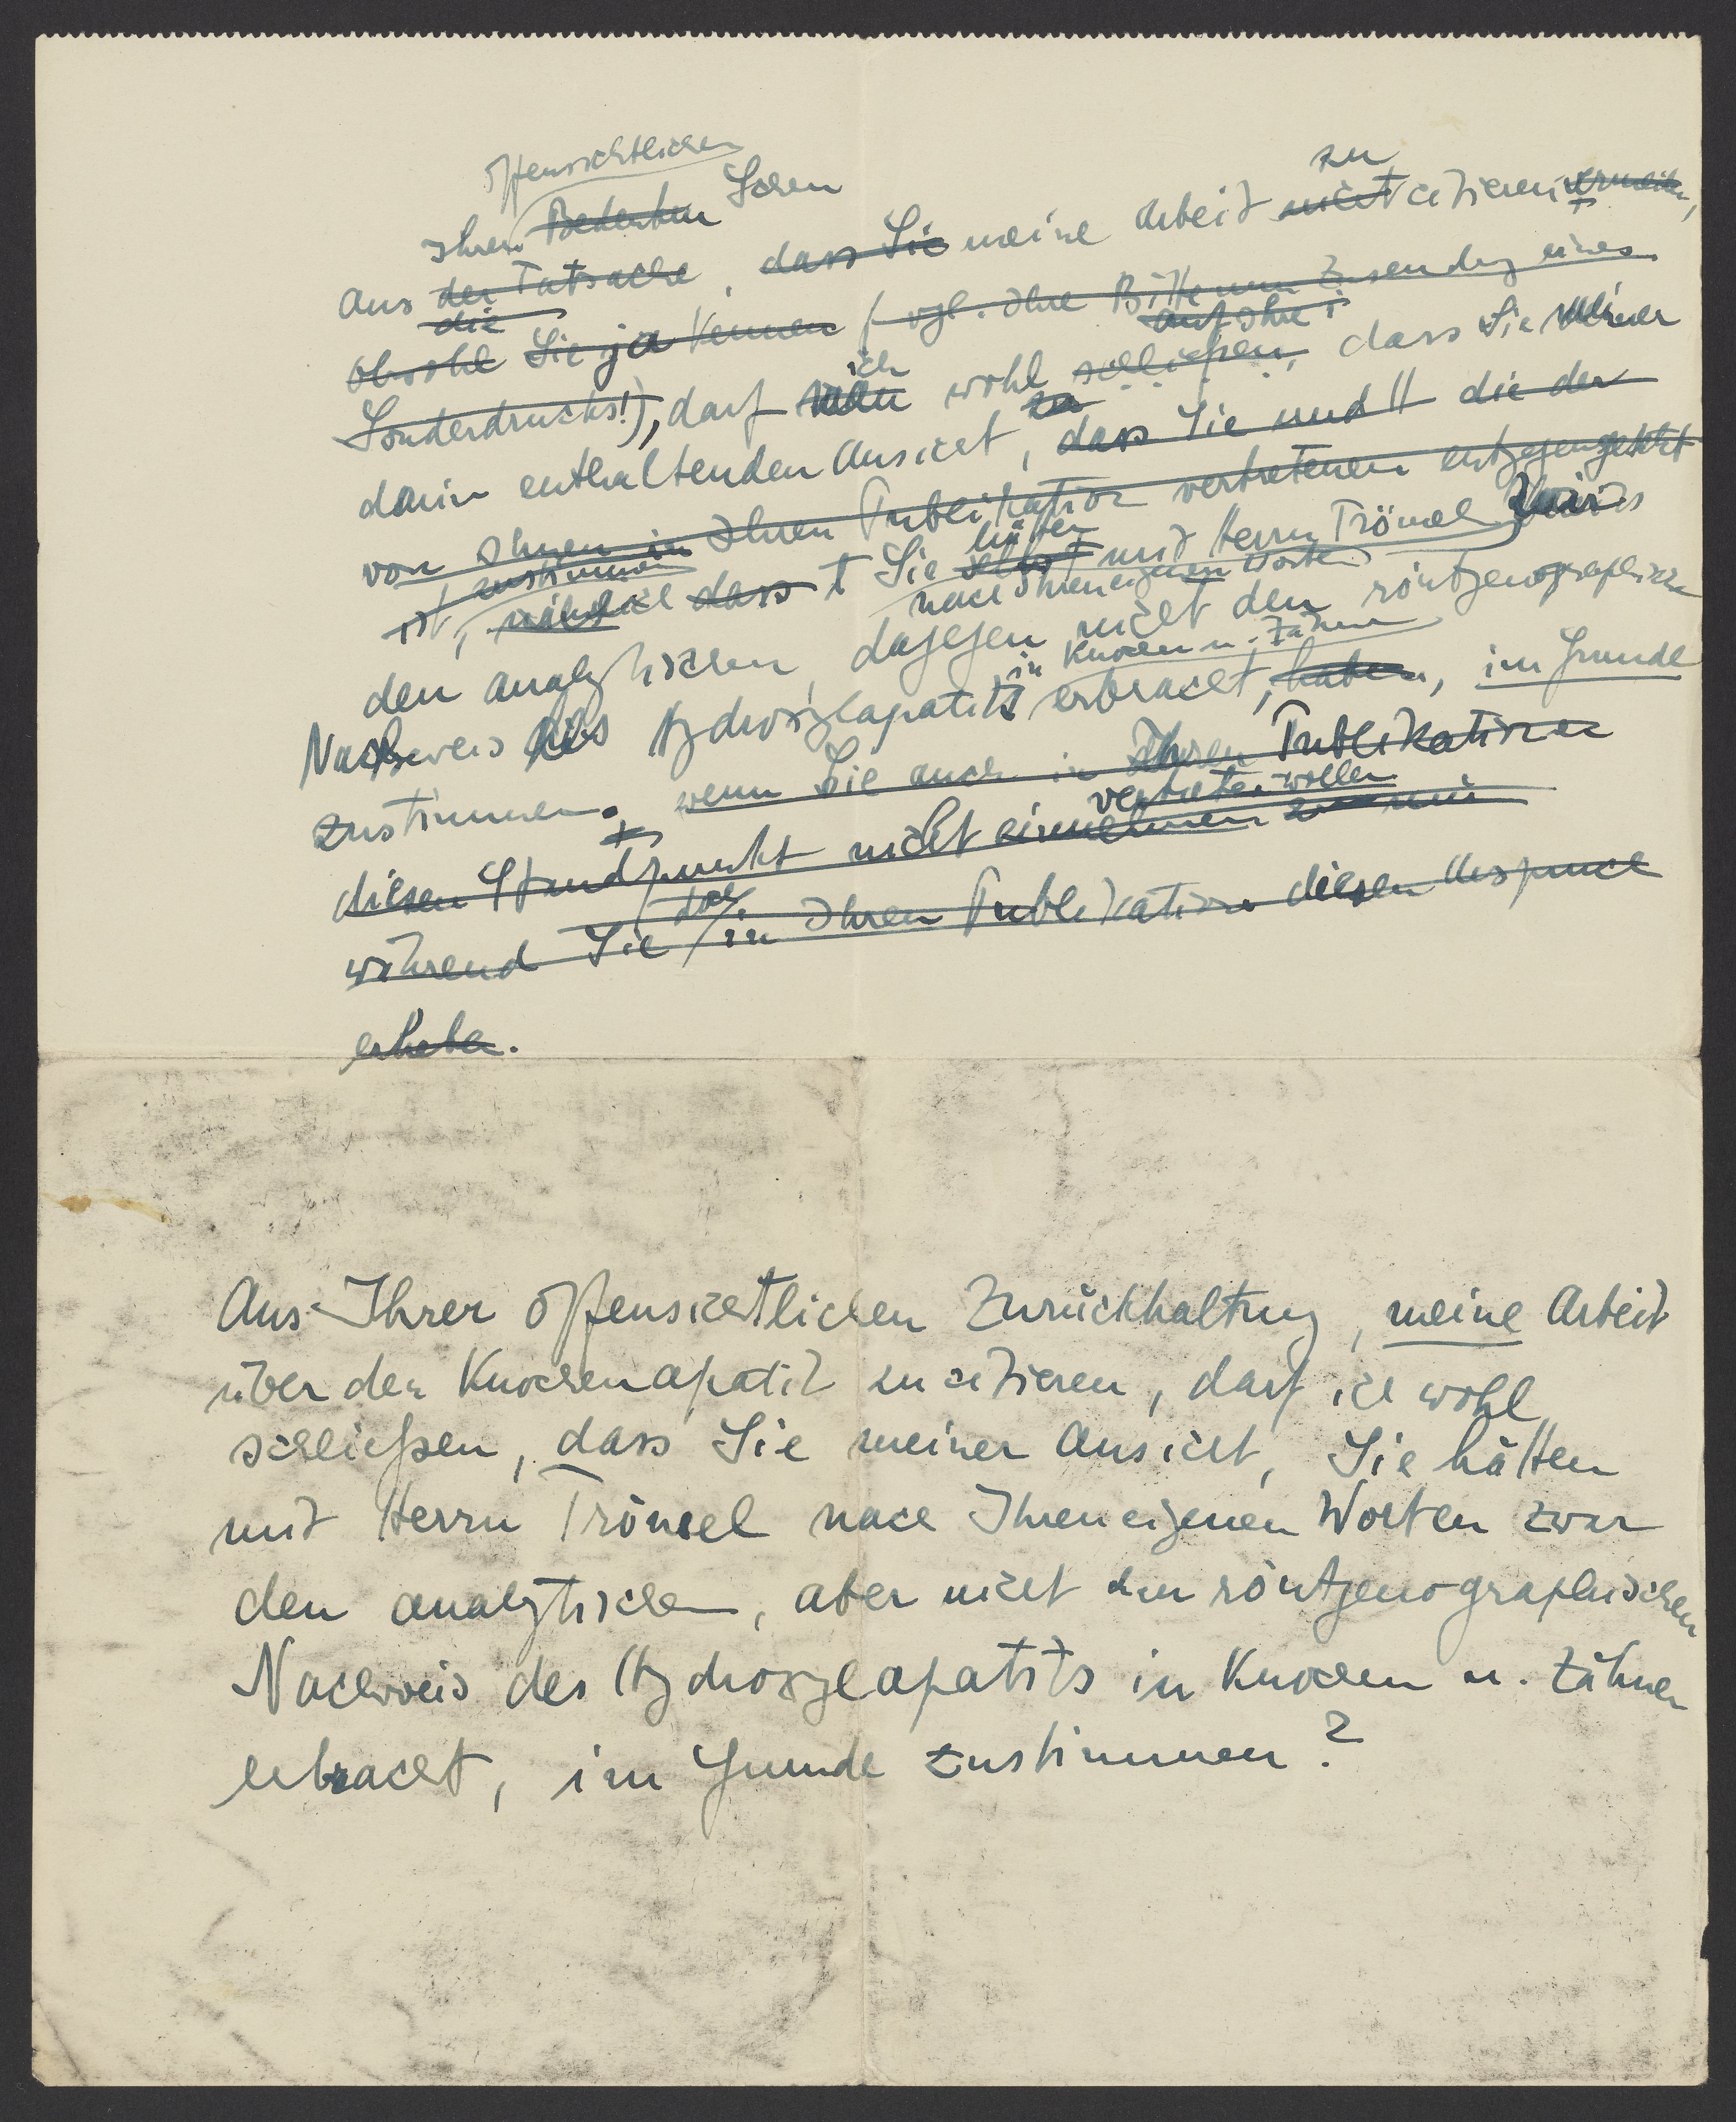 offensichtlichen
Ihrer Bedenken Scheu
zu
aus der Tatsache, dass Sie meine Arbeit nicht citieren
die
obwohl Sie ja kennen (vgl. Ihre Bitte um Zusendung eines
auf Ihre
ich
Sonderdrucks!), darf man wohl schließen, dass Sie meiner
zu
darin enthaltenden Ansicht, dass Sie und die der
von Ihnen in Ihren Publikation vertretenen entgegengesetzt
zustimmen hätten
ist, nämlich dass Sie selbst mit Herrn Trömel zwar
nach Ihren eigenen Worten
den analytischen, dagegen nicht den röntgenographischen
in Knochen u. Zähnen
Nachweis des Hydroxylapatits erbracht, haben, im Grunde
zustimmen. wenn Sie auch in Ihren Publikationen
vertreten wollen
diesen Standpunkt nicht einnehmen
doch
während Sie in Ihren Publikation diesen Anspruch
erheben.
Aus Ihrer offensichtlichen Zurückhaltung, meine Arbeit
über den Knochenapatit zu citieren, darf ich wohl
schließen, dass Sie meiner Ansicht, Sie hätten
mit Herrn Trömel nach Ihren eigenen Worten zwar
den analytischen, aber nicht den röntgenographischen
Nachweis des Hydroxylapatits in Knochen u. Zähnen
erbracht, im Grunde zustimmen?